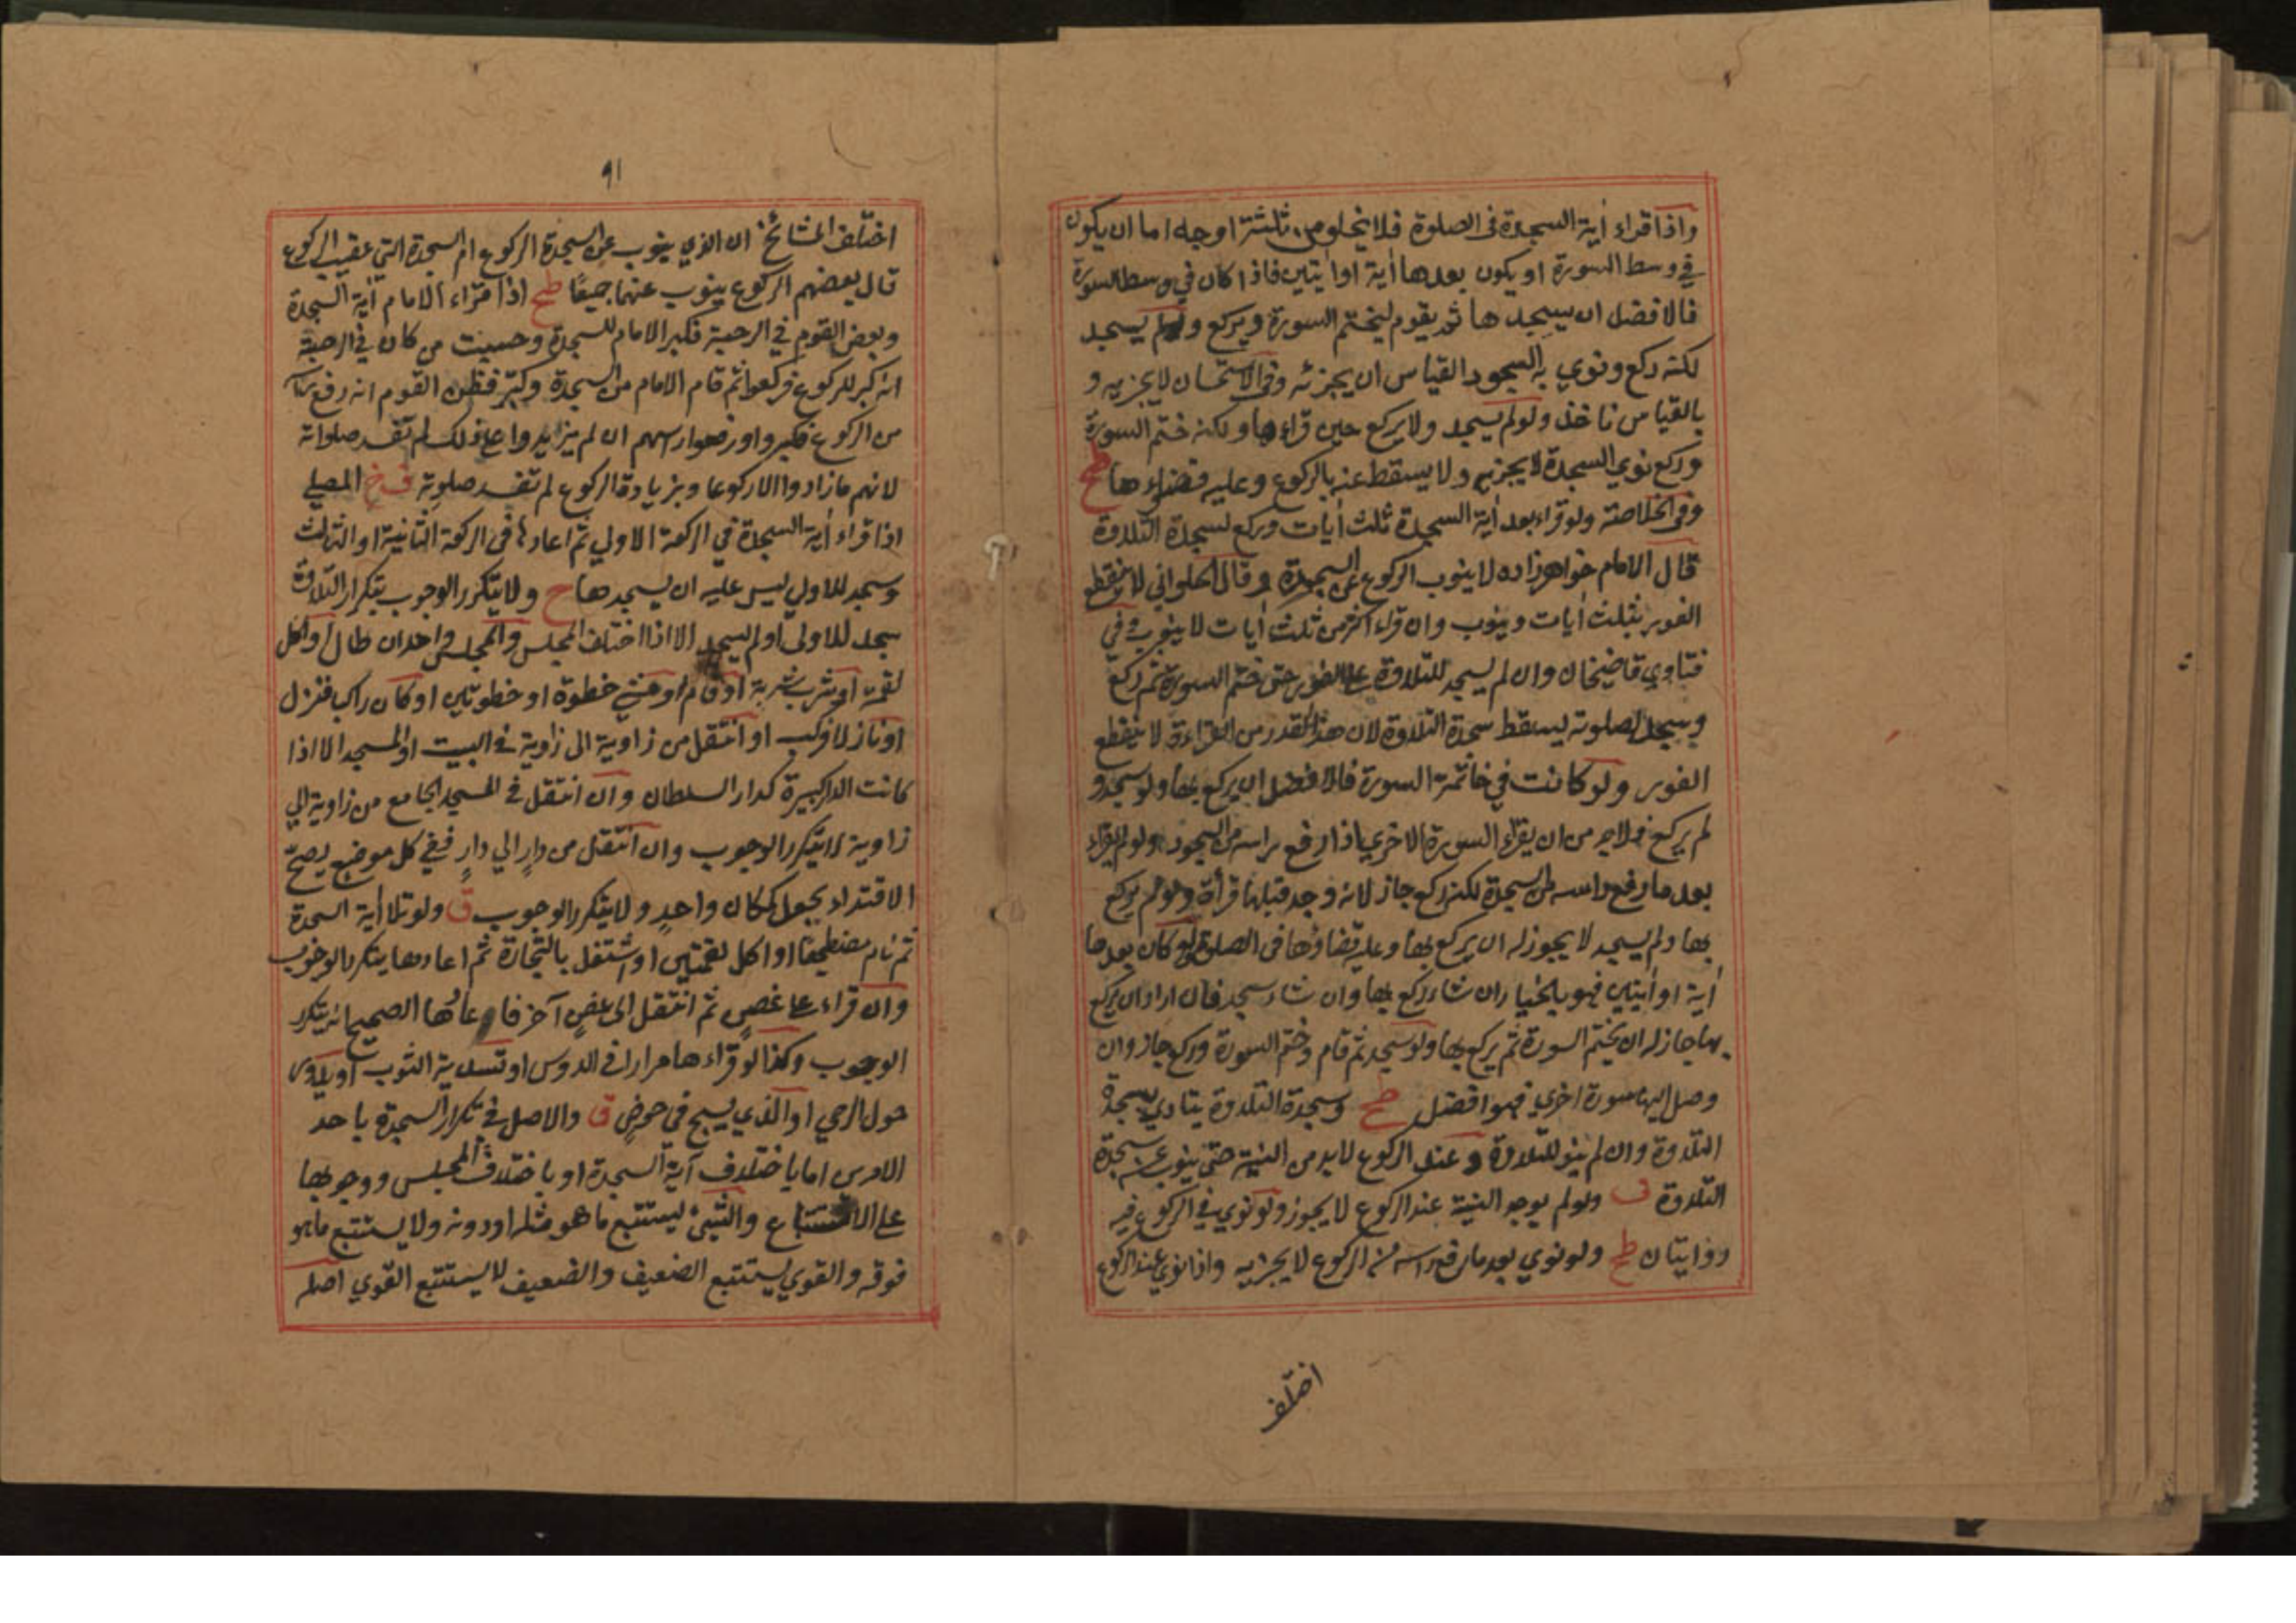 واذا قراء أية السجدة فى الصلوة فلا يخلو من ثلثة اوجه اما ان يكون
في وسط السورة او يكون بعدها أية او أيتين فاذا كان في وسط السورة
فالافضل ان يسجد ها ثم يقوم ليختم السورة ويركع ولو لم يسجد
لكنه ركع ونوي به السجود القياس ان يجزئه وفى الاستحسان لا يجزيه و
بالقياس ناخذ ولو لم يسجد ولا يركع حين قراءها ولكنه ختم السورة
وركع نوي السجدة لا يجزيه ولا يسقط عنه بالركوع وعليه قضاءها طح
وفى الخلاصة ولو قراء بعد أية السجدة ثلث أيات وركع لسجدة التلاوة
قال الامام خواهرزاده لا ينوب الركوع عن السجدة وقال الحلواني لا ينقطع
الفور بثلث أيات وينوب وان قراء اكثر من ثلث أيات لا ينوب وفي
فتاوي قاضيخان وان لم يسجد للتلاوة على الفور حتى ختم السورة ثم ركع
وسجد لصلوته يسقط سجدة التلاوة لان هذا القدر من القراءة لا ينقطع
الفور ولو كانت في خاتمة السورة فالافضل ان يركع بها ولو سجد و
لم يركع فلا بد من ان يقراء السورة الاخري اذا رفع راسه من السجود ولو لم يقراء
بعد ما رفع راسه من السجدة لكنه ركع جاز لانه وجد قبلها قرأة ولو لم يركع
بها ولم يسجد لا يجوز له ان يركع بها وعليه قضاؤها فى الصلوة ولو كان بعدها
أية او أيتين فهو بالخيار ان شاء ركع بها وان شاء سجد فان اراد ان يركع
بها جاز له ان يختم السورة ثم يركع بها ولو سجد ثم قام وختم السورة وركع جاز وان
وصل اليها سورة اخري فهو افضل طح وسجدة التلاوة يتادي بسجدة
التلاوة وان لم ينو للتلاوة وعند الركوع لا بد من النية حتى ينوب عن سجدة
التلاوة ف ولو لم يوجد النية عند الركوع لا يجوز ولو نوي في الركوع فيه
روايتان طح ولو نوي بعد ما رفع راسه من الركوع لا يجزيه واذا نوي عند الركوع
اختلف
٩١
اختلف المشائخ ان الذي ينوب عن السجدة الركوع ام السجدة التي عقيب الركوع
قال بعضهم الركوع ينوب عنهما جميعًا طح اذا قراء الامام أية السجدة
وبعض القوم في الرحبة فكبر الامام للسجدة وحسبت من كان في الرحبة
انه كبر للركوع فركعوا ثم قام الامام من السجدة وكبّر فظن القوم انه رفع راسه
من الركوع فكبروا ورفعوا رسهم ان لم يزايدوا على ذلك لم تفسد صلواته
لانهم ما زادوا الا ركوعا وبزيادة الركوع لم تفسد صلوته ف خ المصلي
اذا قراء أية السجدة في الركعة الاولي ثم اعادها فى الركعة الثانية او الثالث
وسجد للاولي ليس عليه ان يسجدها ح ولا يتكرر الوجوب بتكرار التلاوة
سجد للاولى او لم يسجد الا اذا اختلف المجلس والمجلس واحد ان طال او اكل
لقمة او شرب شربة او قام او مشي خطوة او خطوتين او كان راكب فنزل
او نازلا فركب او انتقل من زاوية الى زاوية في البيت او المسجد الا اذا
كانت الدار كبيرة كدار السلطان وان انتقل في المسجد الجامع من زاوية الي
زاوية لا يتكرر الوجوب وان انتقل من دار الي دارٍ ففي كل موضع يصحّ
الاقتداء يجعل كمكان واحدٍ ولا يتكرر الوجوب ق ولو تلا أية السجدة
ثم نام مضطجعًا او اكل لقمتين او اشتغل بالتجارة ثم اعادها يتكرر الوجوب
وان قراء على غصنٍ ثم انتقل الى غصنٍ آخر فاعادها الصحيح انه يتكرر
الوجوب وكذا لو قراءها مرارا فى الدوس او تسدية الثوب او يدور
حول الرحي او الذي يسبح فى حوضٍ ق والاصل في تكرار السجدة باحد
الامرين اما باختلاف آية السجدة او باختلاف المجلس ووجوبها
على الاستتباع والشيئ يستتبع ما هو مثله او دونه ولا يستتبع ما هو
فوقه والقوي يستتبع الضعيف والضعيف لا يستتبع القوي اصله